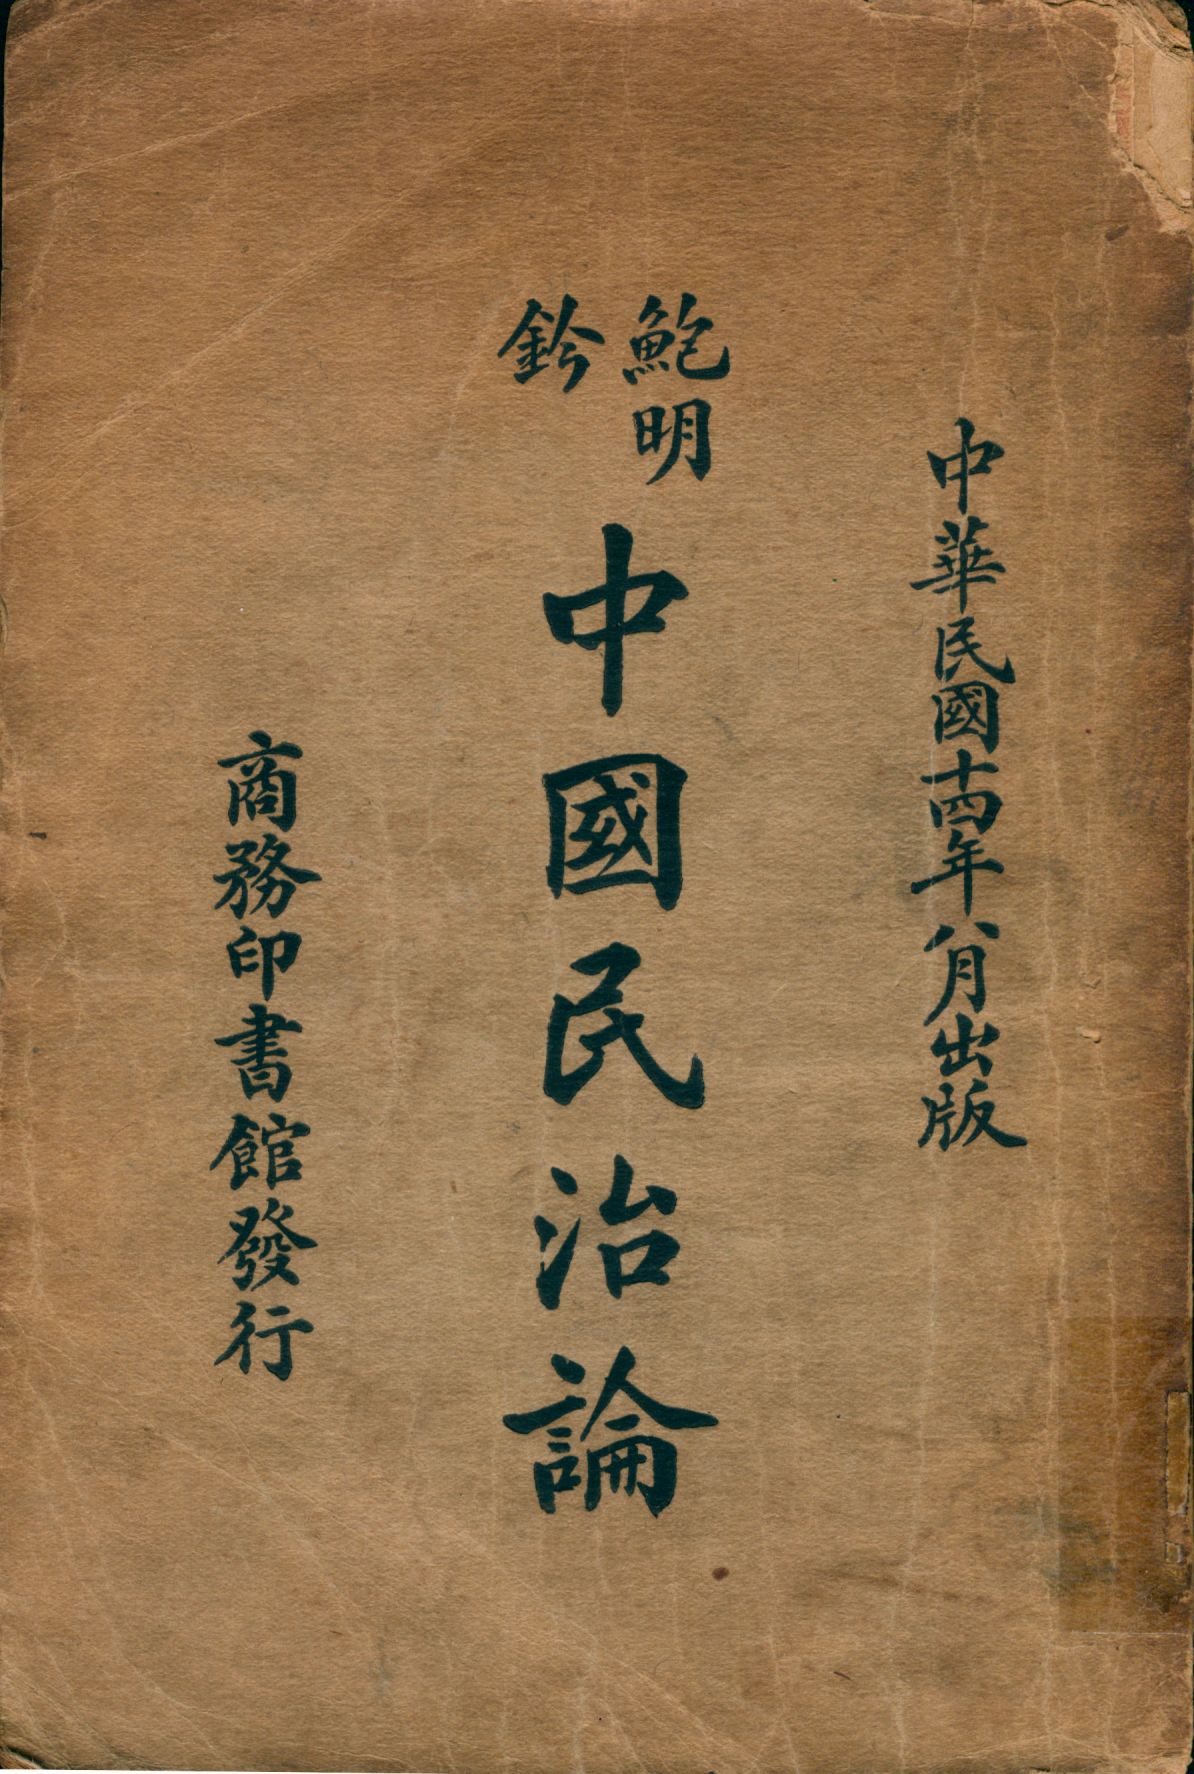 中華民國十四年八月出版
鮑明
鈐
中國民治論
商務印書館發行